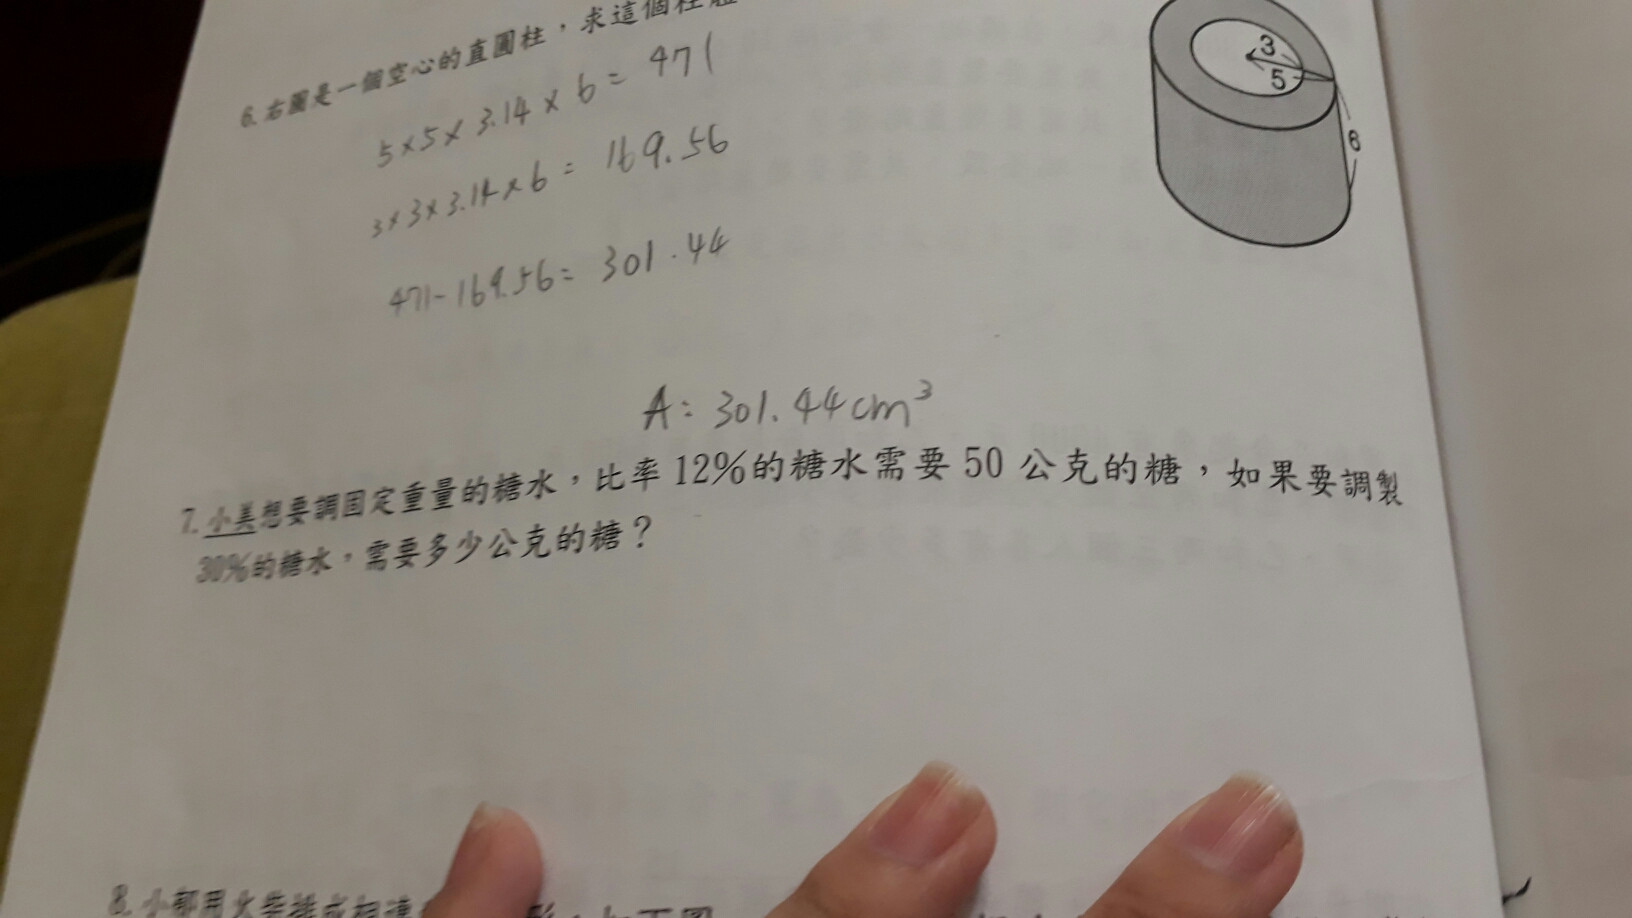 6. 右圖是一個空心的直圓柱，求這個柱體
5×5×3.14×6=471
3×3×3.14×6=169.56
471-169.56=301.44
3
5
6
A:301.44cm³
7. 小美想要調固定重量的糖水，比率12%的糖水需要50公克的糖，如果要調製
30%的糖水，需要多少公克的糖？
8. 小郁用火柴排成相連